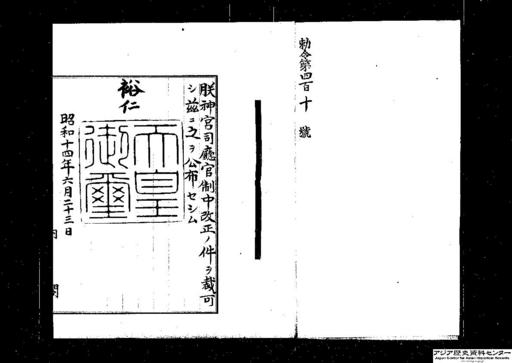 勅令第四百十號
朕神宮司廳官制中改正ノ件ヲ裁可
シ茲ニ之ヲ公布セシム
裕仁
天皇御璽
昭和十四年六月二十三日
内閣
アジア歴史資料センター
Japan Center for Asian Historical Records